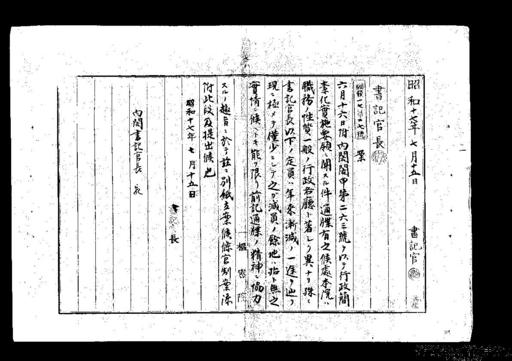 昭和十七年七月十五日
書記官
書記官長
案
六月十六日附内閣閣甲第二六三號ヲ以テ行政簡
素化實施要領ニ關スル件通牒有之候處本院ハ
職務ノ性質一般ノ行政各廳ト著シク異ナリ殊ニ
書記官長以下ノ定員ハ年來漸減ノ一途ヲ辿リ
現ニ極メテ僅少ニシテ之ガ減員ノ餘地ハ殆ト無之
實情ニ候ヘトモ能フ限リ前記通牒ノ精神ニ協力
スルノ趣旨ニ於テ茲ニ別紙立案候條官制案添
附此段及提出候也
昭和十七年七月十五日
書記官長
内閣書記官長宛
樞密院